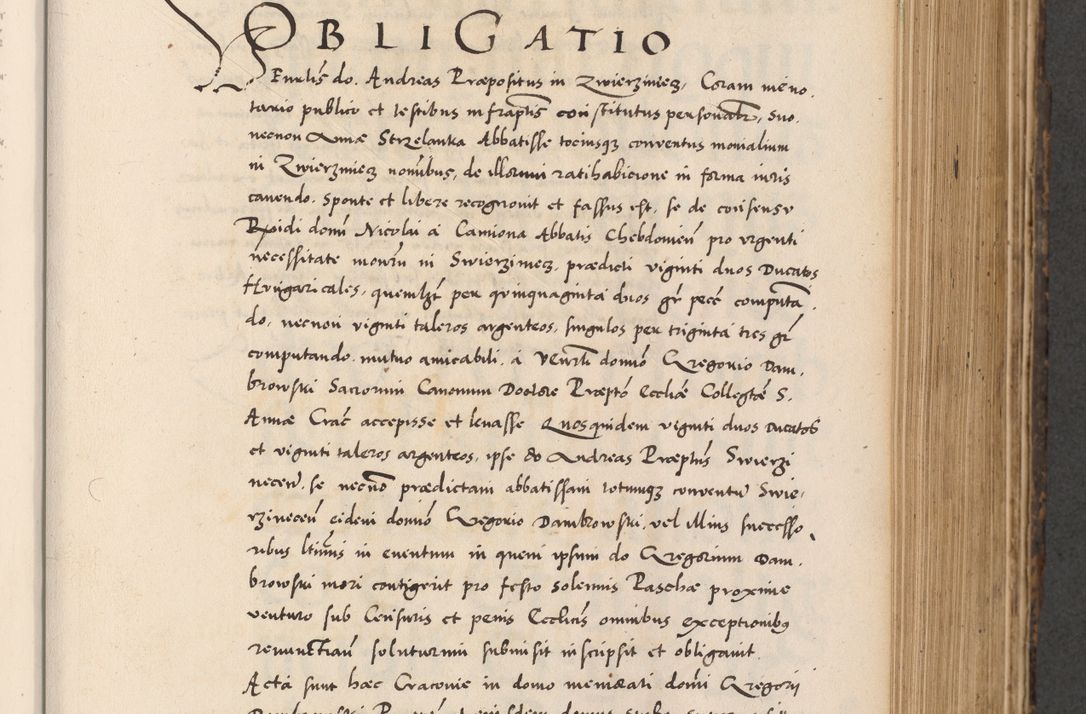 OBLIGATIO
Venrlis do. Andreas Præpositus in Zwierziniecz, Coram me no,
tario publico et testibus infraptis constitutus personalr, suo,
necnon Annæ Strzelanka Abbatisse tociusq conventus monialium
in Zwierziniecz nominibus, de illorum ratihabicione in forma iuris
cavendo. Sponte et libere recognovit et fassus est, se de consensv
Rxidi domi Nicolai a Camiona Abbatis Chebdovien pro vrgenti
necessitate monrii in Swierziniecz, prædicti viginti duos Ducatos
Hvngaricales, quemlzt per qvinquaginta dvos gr pecc computa,
do, necnon viginti taleros argenteos, singulos per triginta tres gr
computando. mutuo amicabili. a Venrli domino Gregorio Dam,
browski Sacrorum Canonum Doctore Præpto Eccliæ Collegtæ S.
Annæ Crac accepisse et levasse Quos quidem viginti duos Ducatos
et viginti taleros argenteos, ipse do Andreas Præptus Swierzi
necen, se necno prædictam abbatissam totumq conventu Swie,
rzinecen eidem domino Gregorio Dambrowski, vel illius successo,
ribus ltimis in eventum in quem ipsum do Gregorium Dam,
browski mori contigerit pro festo solennis Paschæ proxime
venturo sub Censuris et penis Ecclicis omnibus exceptionibus
renunctian soluturum submisit inscripsit et obligavit.
Acta sunt hæc Cracovie in domo memorati domi Gregorii